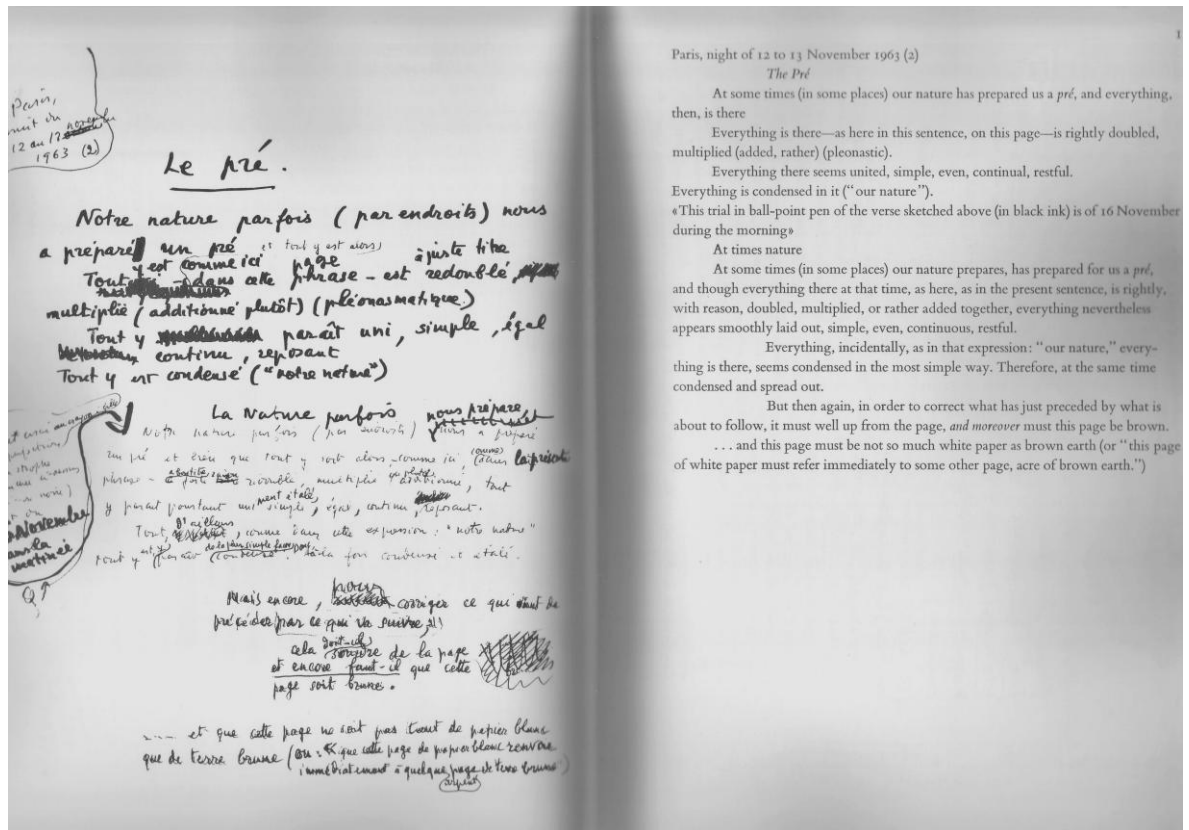 Paris,
nuit du
12 au 13 novembre
1963 (2)
Le pré.
Notre nature parfois (par endroits) nous
a préparé un pré et tout y est alors,
Tout y est comme ici page à juste titre
- dans cette phrase - est redoublé,
multiplié (additionné plutôt) (pléonasmatique)
Tout y paraît uni, simple, égal
continu, reposant
Tout y est condensé ("notre nature")
La Nature parfois nous prépare
Notre nature parfois (par endroits) nous a préparé
un pré et bien que tout y soit alors, comme ici, (comme) dans la présente
phrase - à juste titre redoublé, multiplié ou plutôt additionné, tout
y paraît pourtant uniment étalé, simple, égal, continu, reposant.
Tout, d'ailleurs, comme dans cette expression : "notre nature"
tout y est, y paraît de la plus simple façon à la fois condensé et étalé.
Novembre
dans la
matinée
Mais encore, pour corriger ce qui vient de
précéder par ce qui va suivre,
cela doit-il sourdre de la page
et encore faut-il que cette
page soit brune.
.... et que cette page ne soit pas tant de papier blanc
que de terre brune (ou : que cette page de papier blanc renvoie
immédiatement à quelque page de terre brune)
arpent
1
Paris, night of 12 to 13 November 1963 (2)
The Pré
At some times (in some places) our nature has prepared us a pré, and everything,
then, is there
Everything is there—as here in this sentence, on this page—is rightly doubled,
multiplied (added, rather) (pleonastic).
Everything there seems united, simple, even, continual, restful.
Everything is condensed in it ("our nature").
«This trial in ball-point pen of the verse sketched above (in black ink) is of 16 November
during the morning»
At times nature
At some times (in some places) our nature prepares, has prepared for us a pré,
and though everything there at that time, as here, as in the present sentence, is rightly,
with reason, doubled, multiplied, or rather added together, everything nevertheless
appears smoothly laid out, simple, even, continuous, restful.
Everything, incidentally, as in that expression: "our nature," every-
thing is there, seems condensed in the most simple way. Therefore, at the same time
condensed and spread out.
But then again, in order to correct what has just preceded by what is
about to follow, it must well up from the page, and moreover must this page be brown.
. . . and this page must be not so much white paper as brown earth (or "this page
of white paper must refer immediately to some other page, acre of brown earth.")